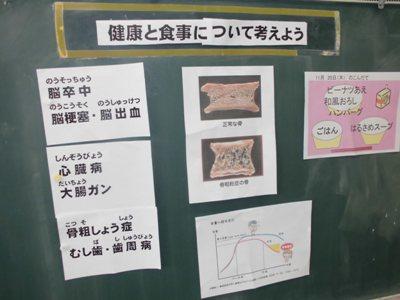 健康と食事について考えよう
のうそっちゅう
脳卒中
のうこうそく のうしゅっけつ
脳梗塞・脳出血
しんぞうびょう
心臓病
だいちょう
大腸ガン
こつ そ しょう
骨粗しょう症
ば し ししゅうびょう
むし歯・歯周病
正常な骨
骨粗鬆症の骨
11月 20日(木) のこんだて
ピーナツあえ
和風おろし
ハンバーグ
ごはん
はるさめスープ